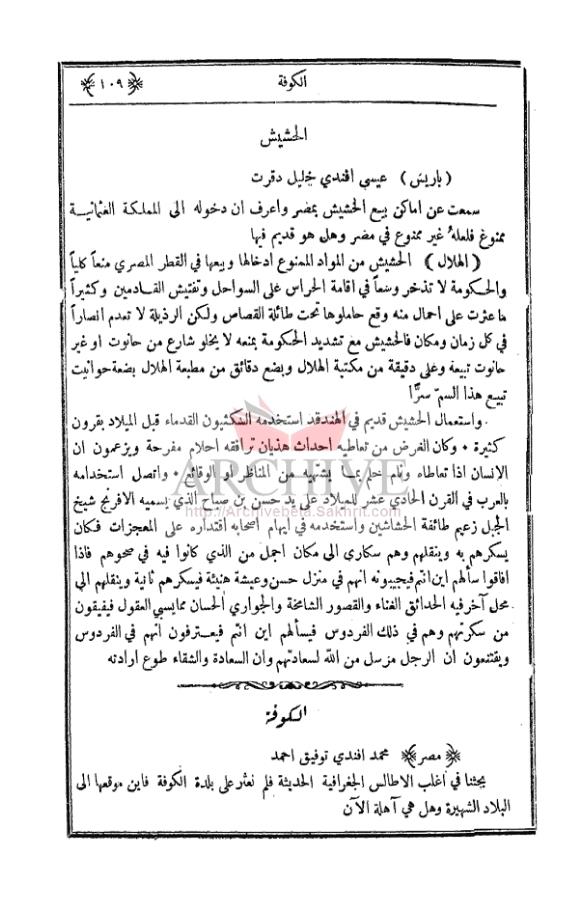 الكوفة
﴿١٠٩﴾
الحشيش
( باريس ) عيسى افندي خليل دقرت
سمعت عن اماكن بيع الحشيش بمصر واعرف ان دخوله الى المملكة العثمانية
ممنوع فلعله غير ممنوع في مصر وهل هو قديم فيها
( الهلال ) الحشيش من المواد الممنوع ادخالها وبيعها في القطر المصري منعاً كلياً
والحكومة لا تذخر وسعاً في اقامة الحراس على السواحل وتفتيش القادمين وكثيراً
ما عثرت على احمال منه وقع حاملوها تحت طائلة القصاص ولكن الرذيلة لا تعدم انصاراً
في كل زمان ومكان فالحشيش مع تشديد الحكومة بمنعه لا يخلو شارع من حانوت او غير
حانوت تبيعه وعلى دقيقة من مكتبة الهلال وبضع دقائق من مطبعة الهلال بضعة حوانيت
تبيع هذا السمّ سرًّا
واستعمال الحشيش قديم في الهند فقد استخدمه القدماء قبل الميلاد بقرون
كثيرة ٠ وكان الغرض من تعاطيه احداث هذيان ترافقه احلام مفرحة ويزعمون ان
الانسان اذا تعاطاه ونام حلم بما يشتهيه من المناظر او الوقائع ٠ واتصل استخدامه
بالعرب في القرن الحادي عشر للميلاد على يد حسن بن صباح الذي يسميه الافرنج شيخ
الجبل زعيم طائفة الحشاشين واستخدمه في ايهام اصحابه اقتداره على المعجزات فكان
يسكرهم به وينقلهم وهم سكارى الى مكان اجمل من الذي كانوا فيه في صحوهم فاذا
افاقوا سألهم اين انتم فيجيبونه انهم في منزل حسن وعيشة هنيئة فيسكرهم ثانية وينقلهم الى
محل آخر فيه الحدائق الغناء والقصور الشامخة والجواري الحسان مما يسبي العقول فيفيقون
من سكرتهم وهم في ذلك الفردوس فيسألهم اين انتم فيعترفون انهم في الفردوس
ويقتنعون ان الرجل مرسل من الله لسعادتهم وان السعادة والشقاء طوع ارادته
الكوفة
﴿مصر﴾ محمد افندي توفيق احمد
بحثنا في اغلب الاطالس الجغرافية الحديثة فلم نعثر على بلدة الكوفة فاين موقعها الى
البلاد الشهيرة وهل هي آهلة الآن
ARCHIVE
http://Archivebeta.Sakhrit.com